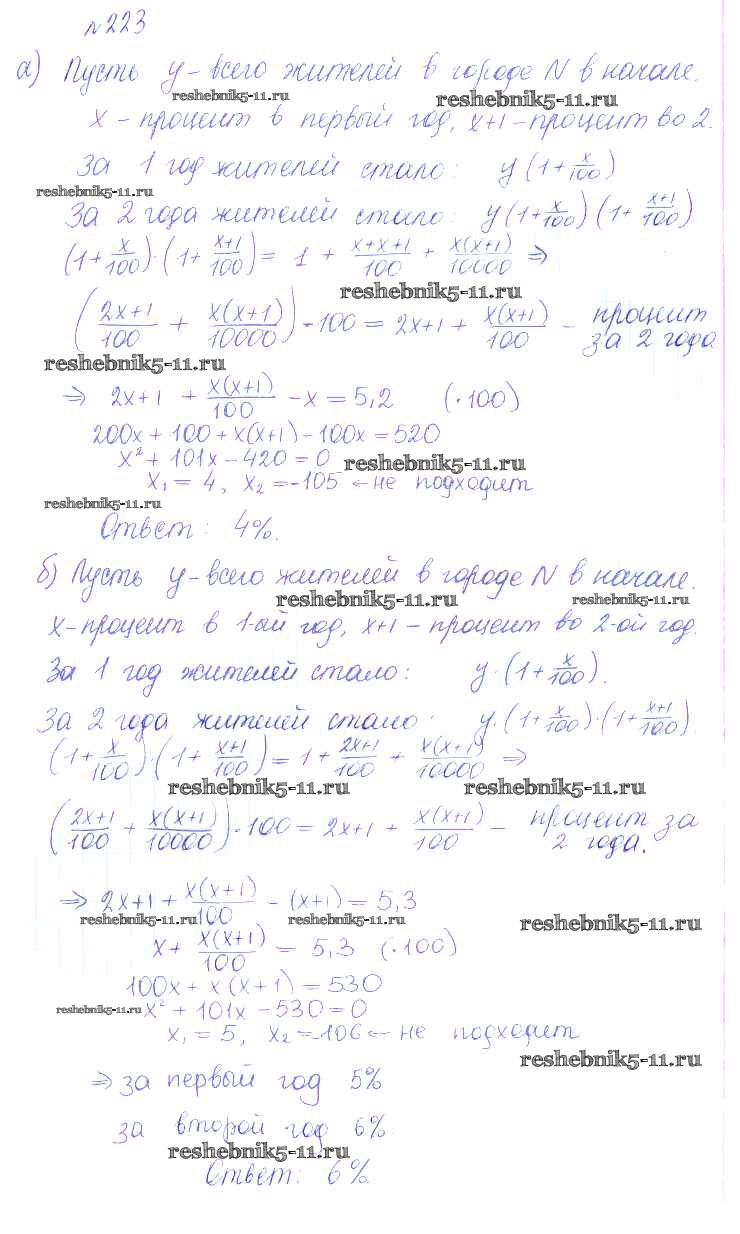 №223
а) Пусть y - всего жителей в городе N в начале.
reshebnik5-11.ru reshebnik5-11.ru
x - процент в первый год, x+1 - процент во 2.
За 1 год жителей стало: y(1+x/100)
reshebnik5-11.ru
За 2 года жителей стало: y(1+x/100)(1+(x+1)/100)
(1+x/100)·(1+(x+1)/100) = 1 + (x+x+1)/100 + x(x+1)/10000 ⇒
reshebnik5-11.ru
((2x+1)/100 + x(x+1)/10000)·100 = 2x+1 + x(x+1)/100 - процент за 2 года
reshebnik5-11.ru
⇒ 2x+1 + x(x+1)/100 - x = 5,2 (·100)
200x + 100 + x(x+1) - 100x = 520
x² + 101x - 420 = 0 reshebnik5-11.ru
x₁ = 4, x₂ = -105 ← не подходит
reshebnik5-11.ru
Ответ: 4%.
б) Пусть y - всего жителей в городе N в начале.
reshebnik5-11.ru reshebnik5-11.ru
x - процент в 1-ый год, x+1 - процент во 2-ой год.
За 1 год жителей стало: y·(1+x/100).
За 2 года жителей стало: y·(1+x/100)·(1+(x+1)/100).
(1+x/100)·(1+(x+1)/100) = 1 + (2x+1)/100 + x(x+1)/10000 ⇒
reshebnik5-11.ru reshebnik5-11.ru
((2x+1)/100 + x(x+1)/10000)·100 = 2x+1 + x(x+1)/100 - процент за 2 года.
⇒ 2x+1 + x(x+1)/100 - (x+1) = 5,3
reshebnik5-11.ru reshebnik5-11.ru reshebnik5-11.ru
x + x(x+1)/100 = 5,3 (·100)
100x + x(x+1) = 530
reshebnik5-11.ru x² + 101x - 530 = 0
x₁ = 5, x₂ = -106 ← не подходит
reshebnik5-11.ru
⇒ за первый год 5%
за второй год 6%
reshebnik5-11.ru
Ответ: 6%